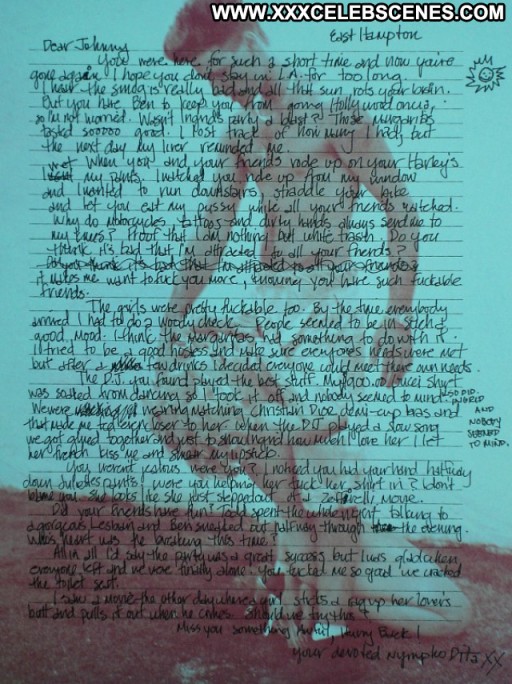 WWW.XXXCELEBSCENES.COM
East Hampton
Dear Johnny,
Your were here for such a short time and now you're
gone again. I hope you don't stay in L.A. for too long.
I hear the smog is really bad and all that sun rots your brain.
But you have Ben to keep you from going Hollywood on us,
so I'm not worried. Wasn't Ingrid's party a blast? Those margaritas
tasted sooooo good. I lost track of how many I had, but
the next day my liver reminded me.
When you and your friends rode up on your Harley's
I wet my pants. I watched you ride up from my window
and I wanted to run downstairs, straddle your bike
and let you eat my pussy while all your friends watched.
Why do motorcycles, tattoos and dirty hands always send me to
my knees? Proof that I am nothing but white trash. Do you
think it's bad that I'm attracted to all your friends?
it makes me want to fuck you more, knowing you have such fuckable
friends.
The girls were pretty fuckable too. By the time everybody
arrived I had to do a woody check. People seemed to be in such a
good mood. I think the margaritas had something to do with it.
I tried to be a good hostess and make sure everyone's needs were met
but after a few drinks I decided everyone could meet their own needs.
The D.J. you found played the best stuff. My Gucci shirt
was soaked from dancing so I took it off and nobody seemed to mind.
SO DID INGRID
AND NOBODY SEEMED TO MIND.
We were wearing matching Christian Dior demi-cup bras and
that made me feel even closer to her. When the DJ played a slow song
we got glued together and just to show Ingrid how much I love her I let
her french kiss me and my lipstick.
You weren't jealous were you? I noticed you had your hand halfway
down Julie's pants! Were you helping her tuck her shirt in? I don't
blame you. She looks like she just stepped out of a Zeffirelli movie.
Did your friends have fun? Todd spent the whole night talking to
a gorgeous lesbian and Ben sneaked out halfway through the evening.
Who's heart was he breaking this time?
All in all I'd say the party was a great success, but I was glad when
everyone left and we were finally alone. You fucked me so good we cracked
the toilet seat.
I saw a movie the other day where a girl sticks a rag up her lover's
butt and pulls it out when he comes. Should we try this?
Miss you something awful. Hurry Back!
Your devoted Nympho Dita XX